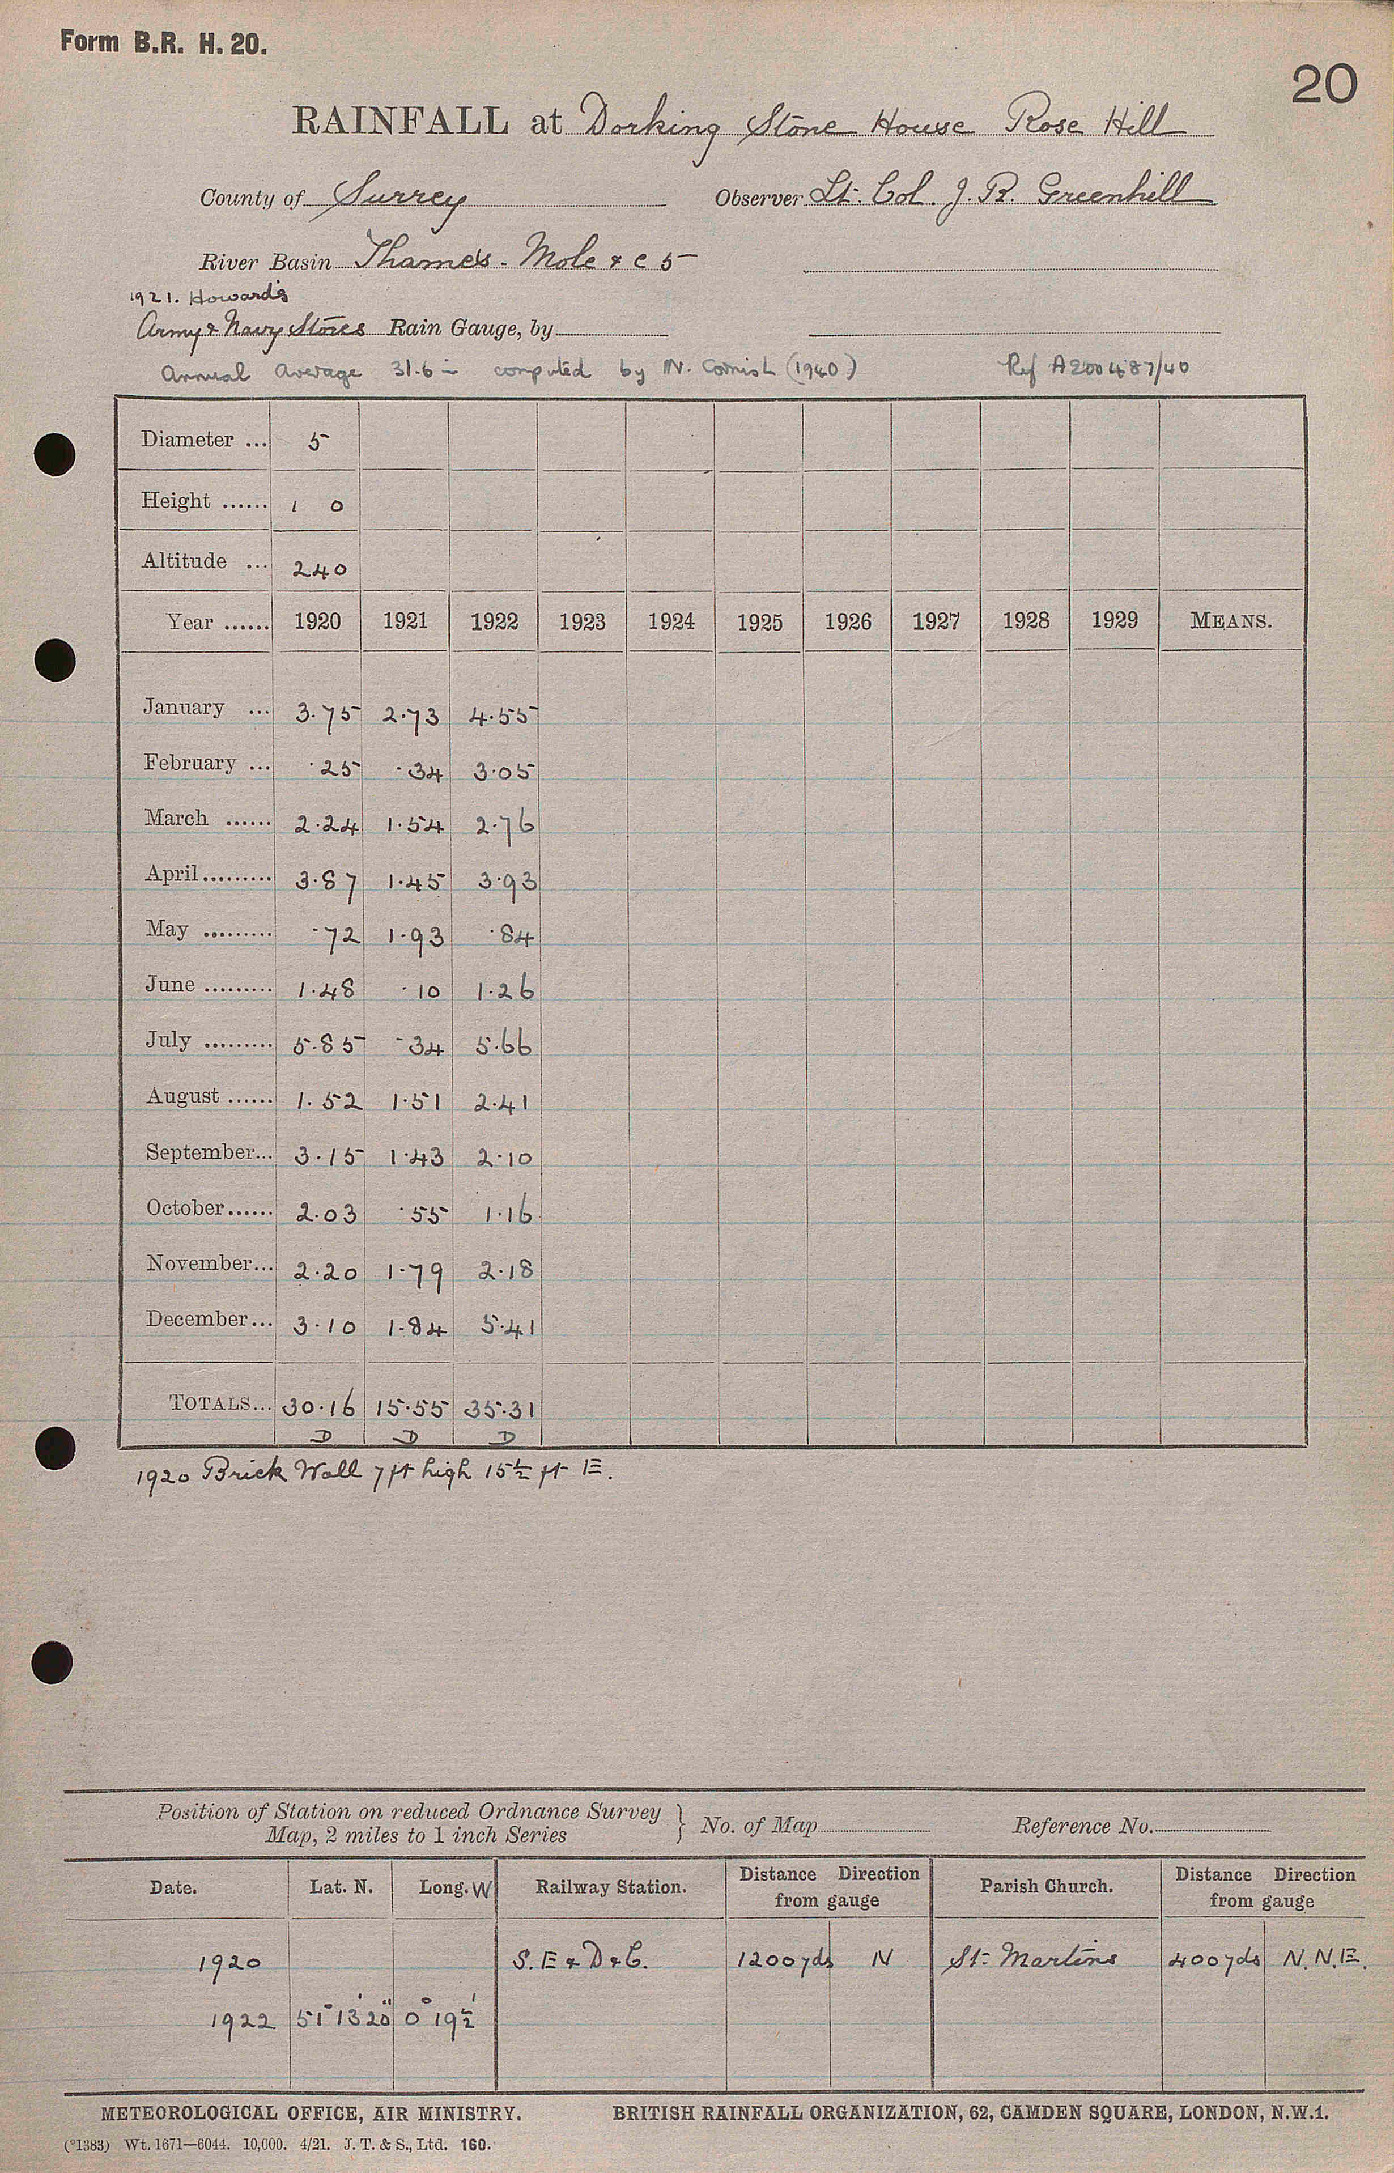 Form B.R. H. 20.
20
RAINFALL at Dorking Stone House Rose Hill
County of Surrey Observer Lt. Col. J. R. Greenhill
River Basin Thames - Mole & c 5
1921. Howard's
Army & Navy Stores Rain Gauge, by
Annual Average 31.6 in computed by N. Cornish (1940) Ref A200487/40
Diameter ... 5
Height ...... 1 0
Altitude ... 240
Year ...... 1920 1921 1922 1923 1924 1925 1926 1927 1928 1929 MEANS.
January ... 3.75 2.73 4.55
February ... .25 .34 3.05
March ...... 2.24 1.54 2.76
April ......... 3.87 1.45 3.93
May ......... .72 1.93 .84
June ......... 1.48 .10 1.26
July ......... 5.85 .34 5.66
August ...... 1.52 1.51 2.41
September... 3.15 1.43 2.10
October...... 2.03 .55 1.16
November... 2.20 1.79 2.18
December... 3.10 1.84 5.41
TOTALS... 30.16 15.55 35.31
D D D
1920 Brick Wall 7 ft high 15½ ft E.
Position of Station on reduced Ordnance Survey } No. of Map Reference No.
Map, 2 miles to 1 inch Series
Date. Lat. N. Long. W Railway Station. Distance Direction from gauge Parish Church. Distance Direction from gauge
1920 S. E & D & C. 1200 yds N St. Martins 400 yds N.N.E.
1922 51° 13' 20" 0° 19½'
METEOROLOGICAL OFFICE, AIR MINISTRY. BRITISH RAINFALL ORGANIZATION, 62, CAMDEN SQUARE, LONDON, N.W.1.
(*1383) Wt. 1671—6044. 10,000. 4/21. J. T. & S., Ltd. 160.